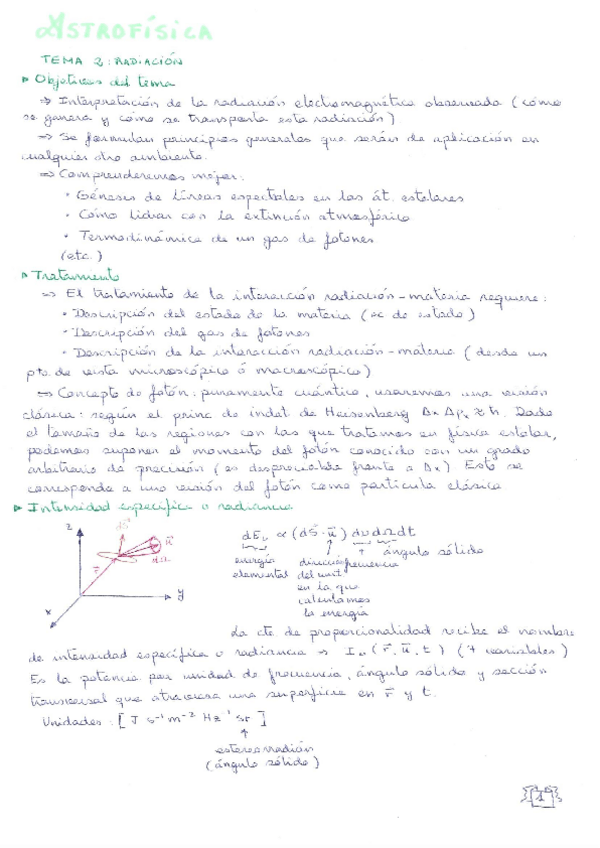 ASTROFÍSICA
TEMA 2: RADIACIÓN
▸ Objetivos del tema
⇒ Interpretación de la radiación electromagnética observada (cómo
se genera y cómo se transporta esta radiación)
⇒ Se formulan principios generales que serán de aplicación en
cualquier otro ambiente.
⇒ Comprenderemos mejor:
• Génesis de líneas espectrales en las át. estelares
• Cómo lidiar con la extinción atmosférica
• Termodinámica de un gas de fotones.
(etc.)
▸ Tratamiento
⇒ El tratamiento de la interacción radiación-materia requiere:
• Descripción del estado de la materia (ec de estado)
• Descripción del gas de fotones
• Descripción de la interacción radiación-materia (desde un
pto. de vista microscópico ó macroscópico)
⇒ Concepto de fotón: puramente cuántico, usaremos una versión
clásica: según el princ de indet de Heisenberg Δx Δpx ≈ ħ. Dado
el tamaño de las regiones con las que tratamos en física estelar,
podemos suponer el momento del fotón conocido con un grado
arbitrario de precisión (es despreciable frente a Δx) Esto se
corresponde a una versión del fotón como partícula clásica
▸ Intensidad específica o radiancia
z dS⃗ u⃗ dΩ r⃗ y x
dEν ∝ (dS⃗·u⃗) dν dΩ dt
energía dirección frecuencia ángulo sólido
elemental del unit
en la que
calculamos
la energía
La cte. de proporcionalidad recibe el nombre
de intensidad específica o radiancia ⇒ Iν (r⃗, u⃗, t) (7 variables)
Es la potencia por unidad de frecuencia, ángulo sólido y sección
transversal que atraviesa una superficie en r⃗ y t.
Unidades: [J s⁻¹ m⁻² Hz⁻¹ sr⁻¹]
estereorradián
(ángulo sólido)
1